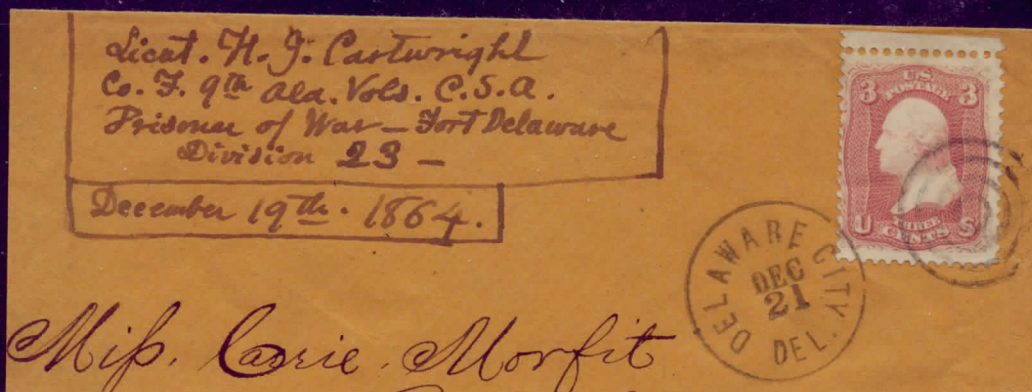 Lieut. H. J. Cartwright
Co. F. 9th Ala. Vols. C.S.A.
Prisoner of War — Fort Delaware
Division 23 —
December 19th. 1864.
U.S. POSTAGE
3 3
U THREE CENTS S
DELAWARE CITY
DEC
21
DEL.
Miſs. Carrie. Morfit